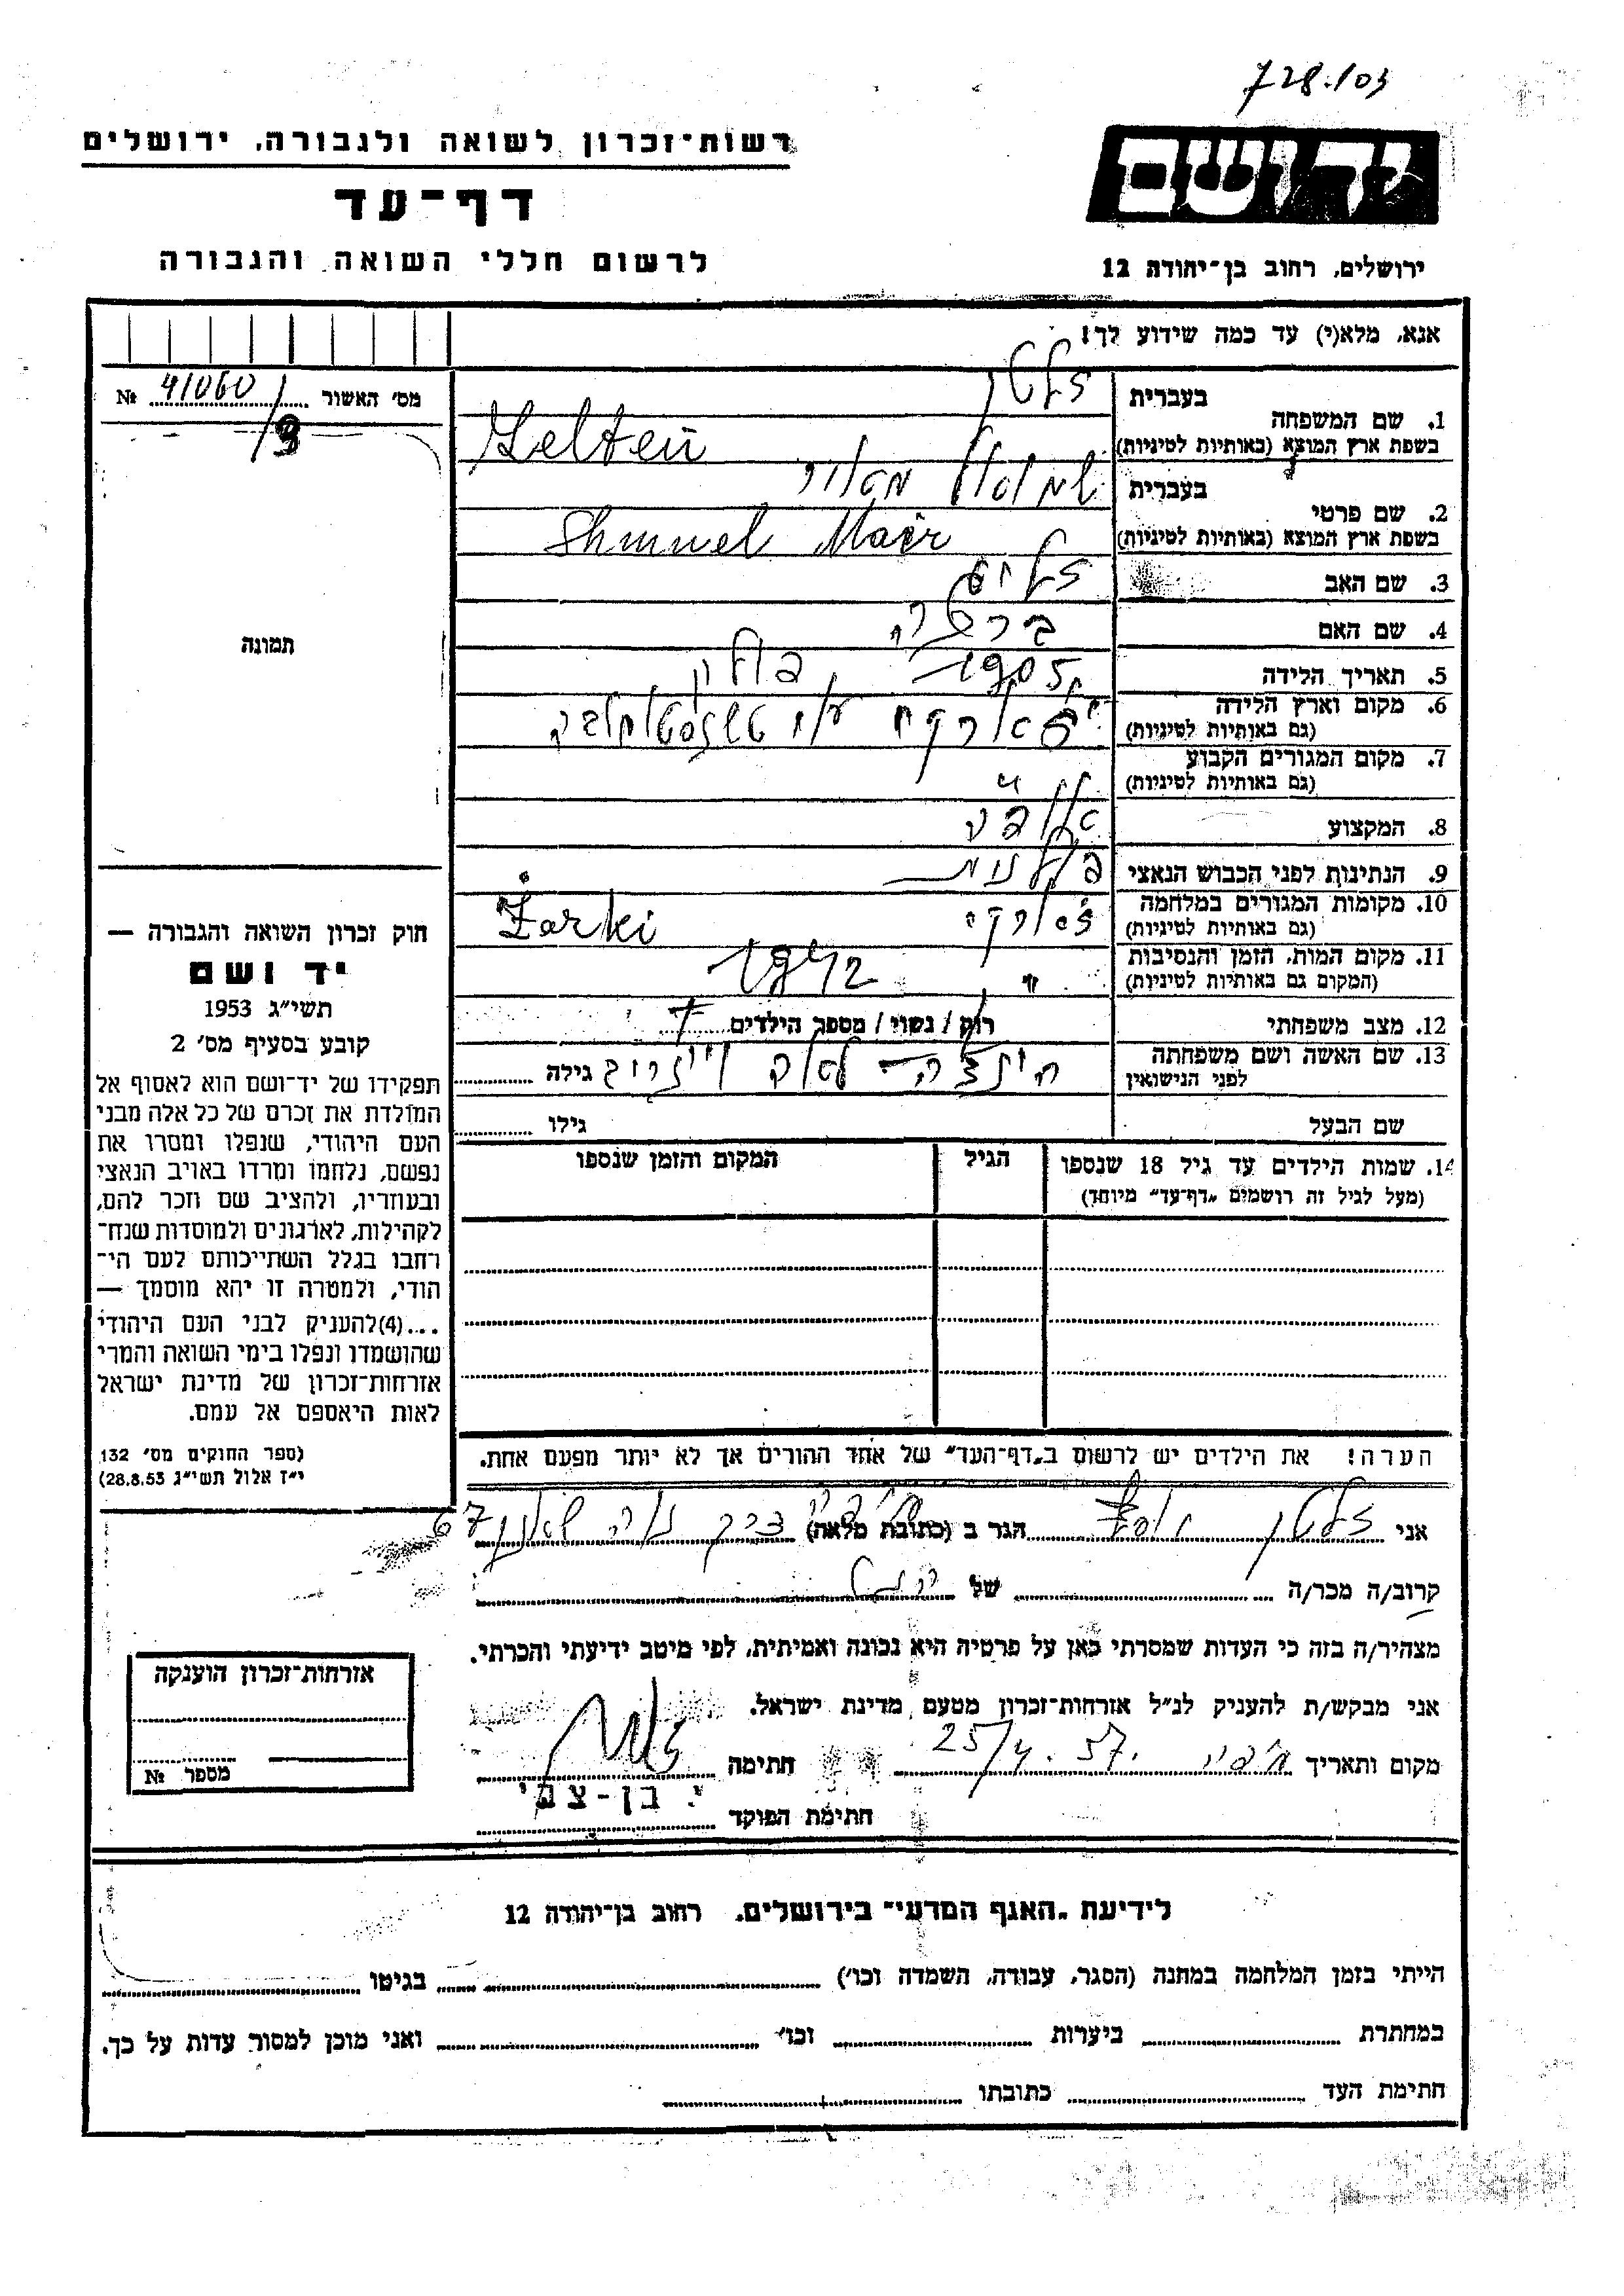 728.103
ידושם
רשות־זכרון לשואה ולגבורה, ירושלים
דף־עד
לרשום חללי השואה והגבורה
ירושלים, רחוב בן־יהודה 12
אנא, מלא(י) עד כמה שידוע לך!
מס' האשור 41060/9 №
1. שם המשפחה
בעברית זלטן
בשפת ארץ המוצא (באותיות לטיניות) Zelten
2. שם פרטי
בעברית שמואל מאיר
בשפת ארץ המוצא (באותיות לטיניות) Shmuel Maër
3. שם האב
4. שם האם
5. תאריך הלידה 1905 פולין
6. מקום וארץ הלידה
(גם באותיות לטיניות)
7. מקום המגורים הקבוע
(גם באותיות לטיניות)
8. המקצוע
9. הנתינות לפני הכבוש הנאצי פולנית
10. מקומות המגורים במלחמה ז'ארקי Żarki
(גם באותיות לטיניות)
11. מקום המות, הזמן והנסיבות " 1942
(המקום גם באותיות לטיניות)
12. מצב משפחתי רוק/נשוי/מספר הילדים
13. שם האשה ושם משפחתה לפני הנישואין גילה
שם הבעל גילו
14. שמות הילדים עד גיל 18 שנספו
(מעל לגיל זה רושמים "דף־עד" מיוחד)
הגיל
המקום והזמן שנספו
הערה! את הילדים יש לרשום ב"דף־העד" של אחד ההורים אך לא יותר מפעם אחת.
תמונה
חוק זכרון השואה והגבורה —
יד ושם
תשי"ג 1953
קובע בסעיף מס' 2
תפקידו של יד־ושם הוא לאסוף אל
המולדת את זכרם של כל אלה מבני
העם היהודי, שנפלו ומסרו את
נפשם, נלחמו ומרדו באויב הנאצי
ובעוזריו, ולהציב שם וזכר להם,
לקהילות, לארגונים ולמוסדות שנח־
רחבו בגלל השתייכותם לעם הי־
הודי, ולמטרה זו יהא מוסמך —
...(4)להעניק לבני העם היהודי
שהושמדו ונפלו בימי השואה והמרי
אזרחות־זכרון של מדינת ישראל
לאות היאספם אל עמם.
(ספר החוקים מס' 132
י"ז אלול תשי"ג 28.8.53)
אני זלטן יוסף הגר ב (כתובת מלאה) 67
קרוב/ה מכר/ה של
מצהיר/ה בזה כי העדות שמסרתי כאן על פרטיה היא נכונה ואמיתית, לפי מיטב ידיעתי והכרתי.
אני מבקש/ת להעניק לנ"ל אזרחות־זכרון מטעם מדינת ישראל.
מקום ותאריך חיפה 25/4.57. חתימה
חתימת הפוקד י. בן-צבי
אזרחות־זכרון הוענקה
מספר №
לידיעת "האגף המדעי" בירושלים, רחוב בן־יהודה 12
הייתי בזמן המלחמה במחנה (הסגר, עבודה, השמדה וכו') בגיטו
במחתרת ביערות וכו' ואני מוכן למסור עדות על כך.
חתימת העד כתובתו